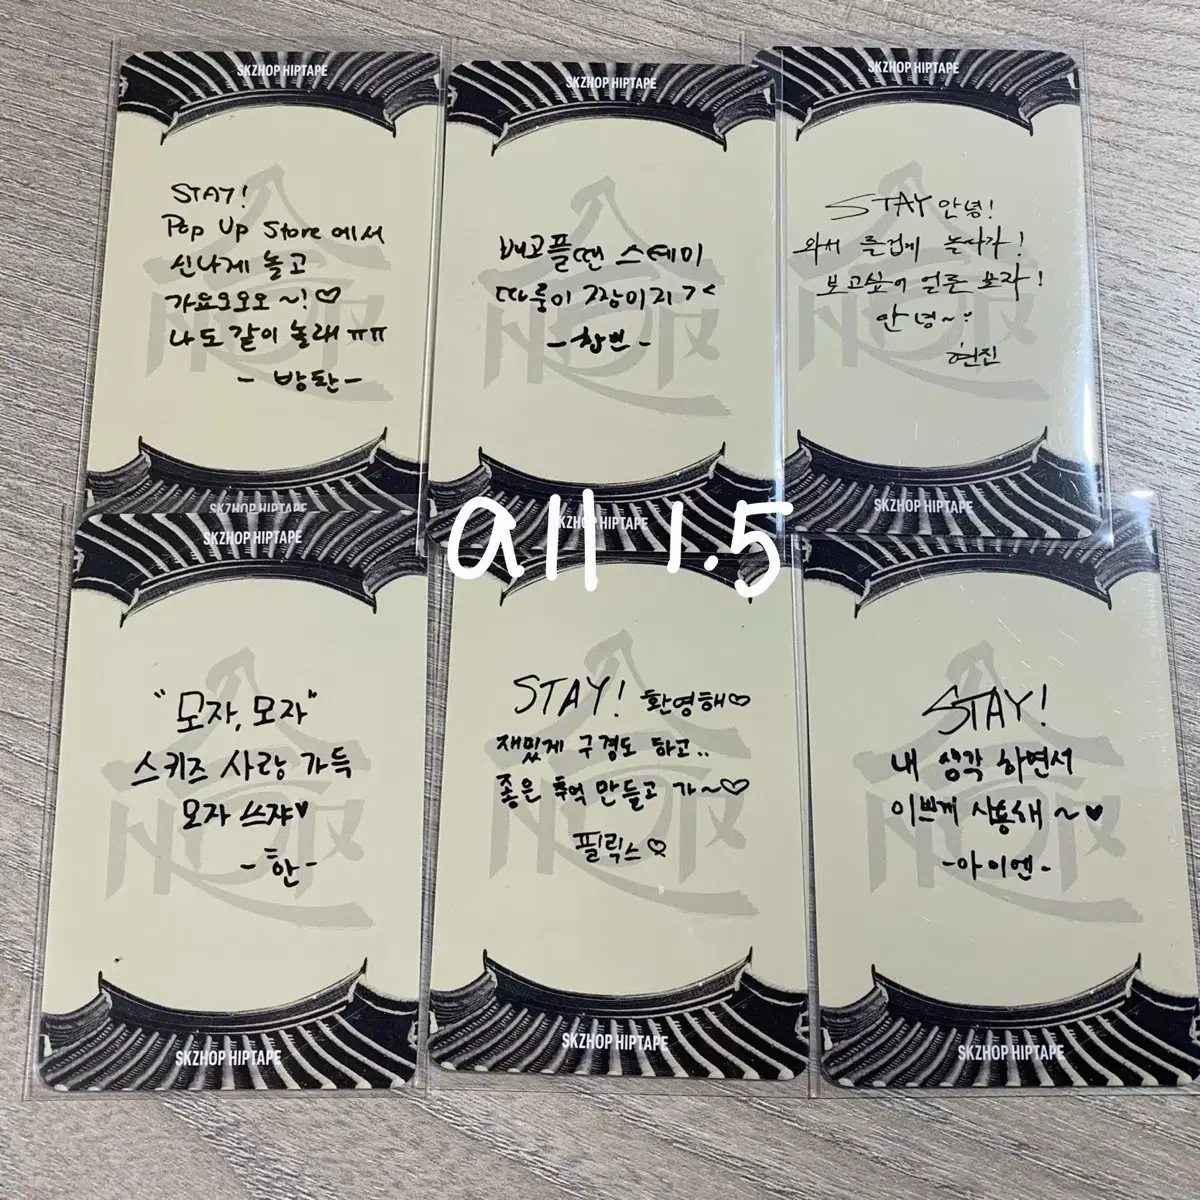 SKZHOP HIPTAPE
STAY!
Pop Up Store 에서
신나게 놀고
가요오오오~!♡
나도 같이 놀래 ㅠㅠ
- 방찬 -
SKZHOP HIPTAPE
SKZHOP HIPTAPE
배고플땐 스테이
- 창빈 -
SKZHOP HIPTAPE
SKZHOP HIPTAPE
STAY 안녕!
와서 즐겁게 놀다가!
보고싶어 얼른 보자!
안녕~
현진
SKZHOP HIPTAPE
all 1.5
SKZHOP HIPTAPE
"모자, 모자"
스키즈 사랑 가득
모자 쓰쟈♥
- 한 -
SKZHOP HIPTAPE
STAY! 환영해♡
재밌게 구경도 하고..
좋은 추억 만들고 가~♡
필릭스♡
SKZHOP HIPTAPE
STAY!
내 생각 하면서
이쁘게 사용해 ~♥
- 아이엔 -
SKZHOP HIPTAPE